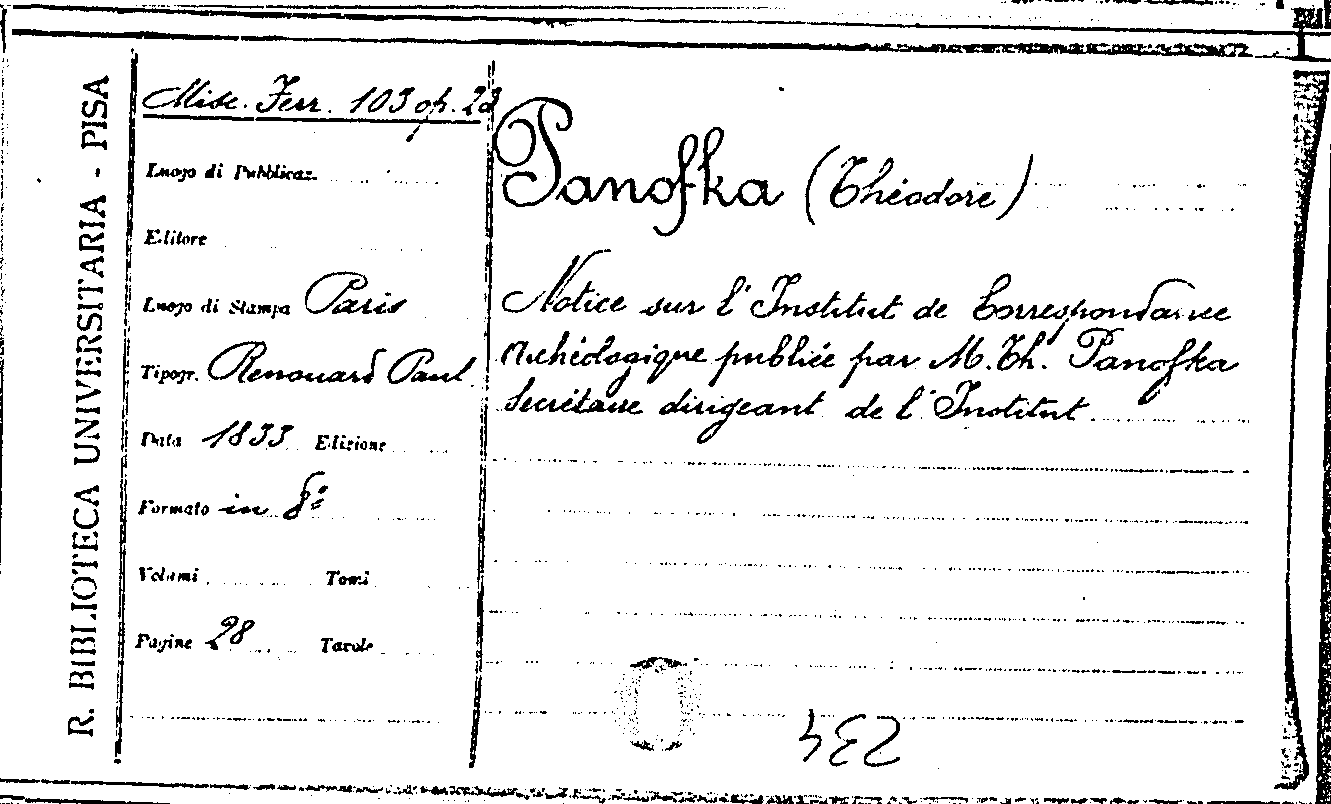 R. BIBLIOTECA UNIVERSITARIA - PISA
Misc. Ferr. 103 op. 23
Luogo di Pubblicaz.
Editore
Luogo di Stampa Paris
Tipogr. Renouard Paul
Data 1833 Edizione
Formato in 8º
Volumi Tomi
Pagine 28 Tavole
Panofka (Théodore)
Notice sur l'Institut de Correspondance
Archéologique publiée par M. Th. Panofka
Secrétaire dirigeant de l'Institut